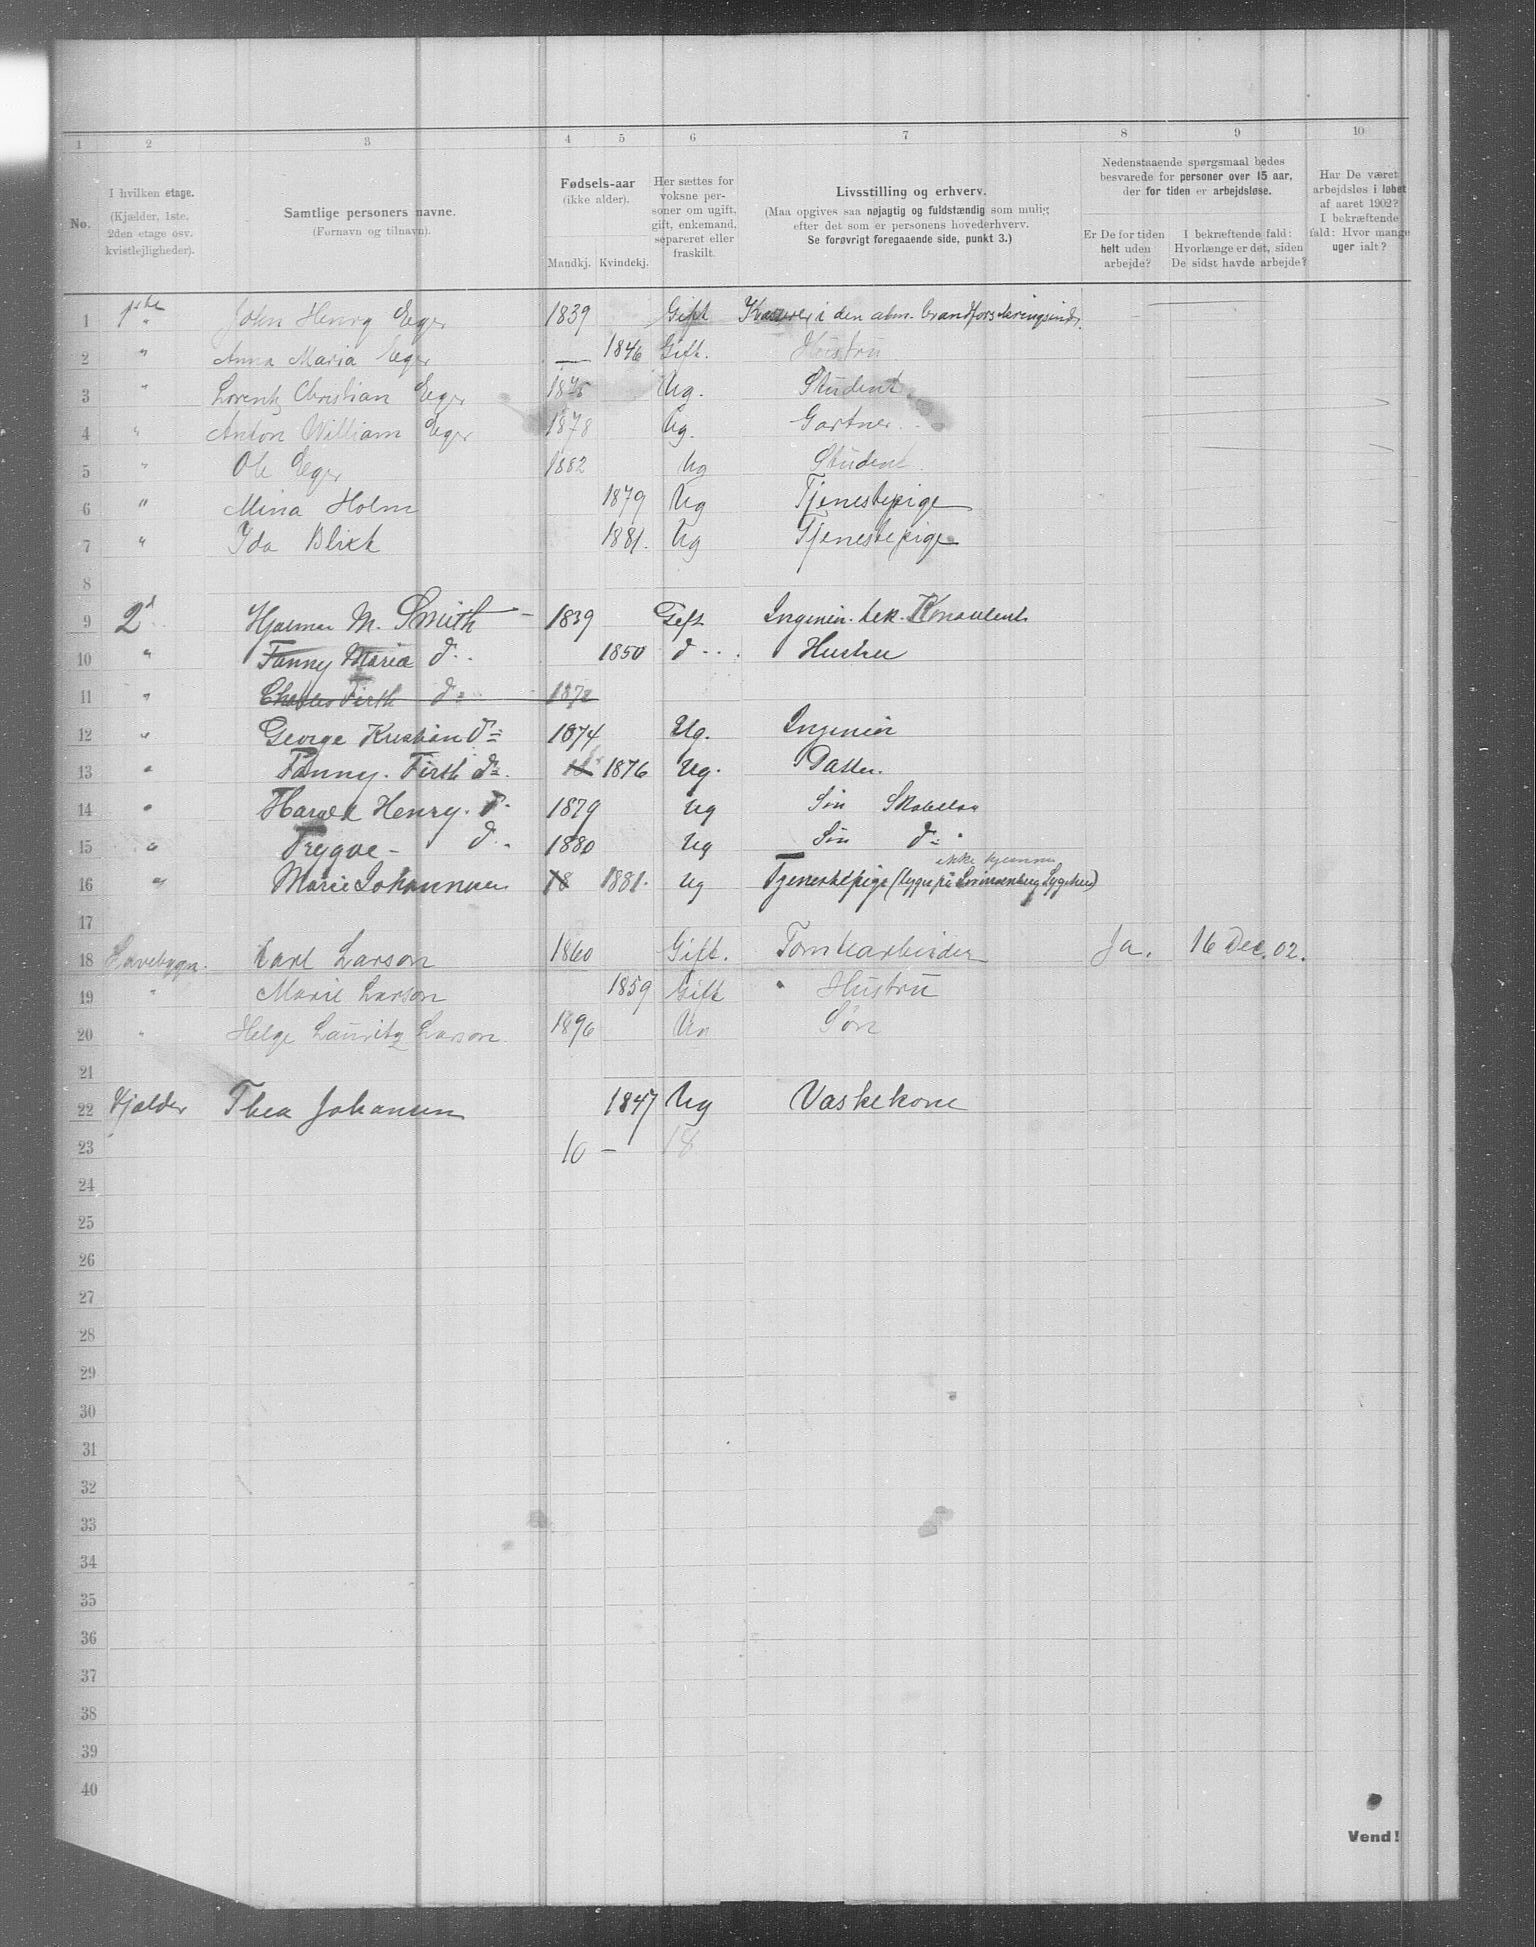 1 2 3 4 5 6 7 8 9 10
No.
I hvilken etage.
(Kjælder, 1ste.
2den etage osv.
kvistlejligheder).
Samtlige personers navne.
(Fornavn og tilnavn).
Fødsels-aar
(ikke alder).
Mandkj. Kvindekj.
Her sættes for
voksne per-
soner om ugift,
gift, enkemand,
separeret eller
fraskilt.
Livsstilling og erhverv.
(Maa opgives saa nøjagtig og fuldstændig som mulig
efter det som er personens hovederhverv.
Se forøvrigt foregaaende side, punkt 3.)
Nedenstaaende spørgsmaal bedes
besvarede for personer over 15 aar,
der for tiden er arbejdsløse.
Er De for tiden
helt uden
arbejde?
I bekræftende fald:
Hvorlænge er det, siden
De sidst havde arbejde?
Har De været
arbejdsløs i løbet
af aaret 1902?
I bekræftende
fald: Hvor mange
uger ialt?
1 1ste John Henry Eger 1839 Gift Kasserer i den alm. brandforsikringsindr.
2 " Anna Maria Eger — 1846 Gift. Hustru
3 " Lorentz Christian Eger 1875 Ug. Student
4 " Anton William Eger 1878 Ug. Gartner
5 " Ole Eger 1882 Ug Student.
6 " Mina Holm 1879 Ug Tjenestepige
7 " Ida Blixt 1881. Ug Tjenestepige
8
9 2d Hjalmar M. Smith 1839 Gift Ingeniör. tek. Konsulent
10 " Fanny Maria do. 1850 do. Hustru
11 " Charles Firth do 1872
12 " George Kristian do 1874 Ug. Ingeniör
13 " Fanny. Firth do. 18 1876 Ug. Datter.
14 " Harald Henry. do 1879 Ug Sön
15 " Trygve - do. 1880 Ug Sön do
ikke hjemme
16 " Marie Johannesen 18 1881. Ug Tjenestepige (ligger på Sygehus)
17
18 Karl Larson 1860 Gift. Tomtearbeider Ja. 16 Dec. 02.
19 " Marie Larson 1859 Gift Hustru
20 " Helge Lauritz Larson 1896 Ug Søn
21
22 Kjælder Thea Johansen 1847 Ug Vaskekone
23 10 — 18
24
25
26
27
28
29
30
31
32
33
34
35
36
37
38
39
40
Vend!